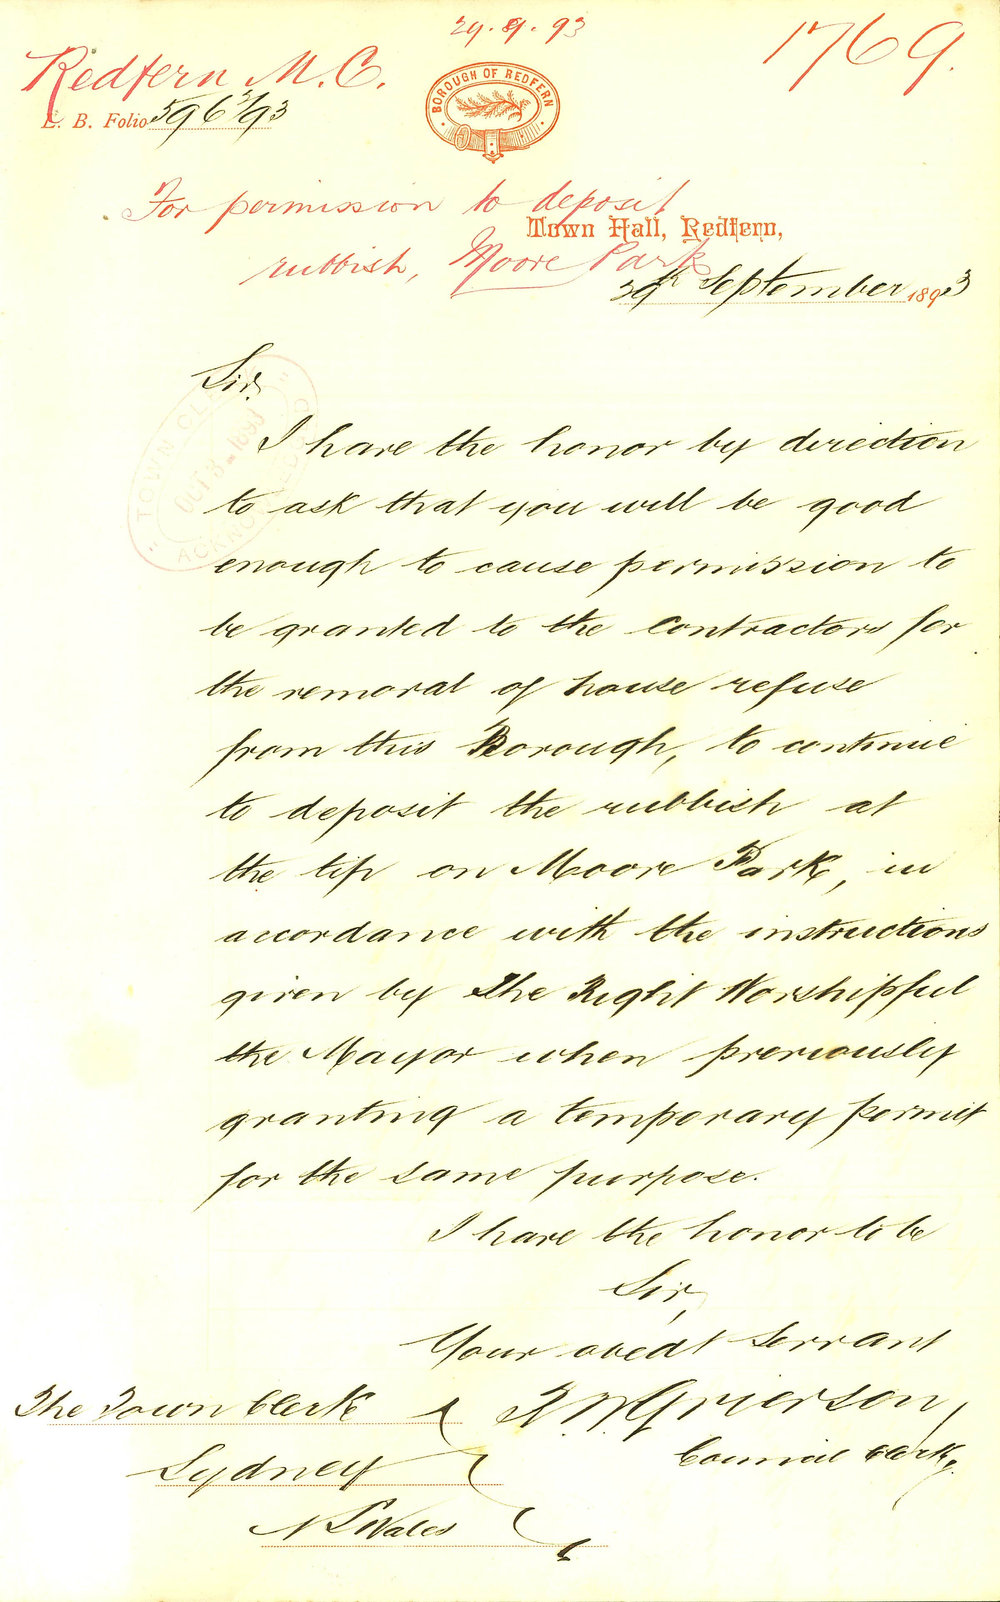 29.9.93
1769.
Redfern M.C.
BOROUGH OF REDFERN
L. B. Folio 596 3/93
For permission to deposit
rubbish, Moore Park
Town Hall, Redfern,
29th September 1893
Sir,
TOWN CLERK
OCT 3 1893
ACKNOWLEDGED
I have the honor by direction
to ask that you will be good
enough to cause permission to
be granted to the Contractors for
the removal of house refuse
from this Borough, to continue
to deposit the rubbish at
the tip on Moore Park, in
accordance with the instructions
given by The Right Worshipful
the Mayor when previously
granting a temporary permit
for the same purpose.
I have the honor to be
Sir,
Your obedt Servant
Grierson
Council Clerk
The Town Clerk
Sydney
N S Wales